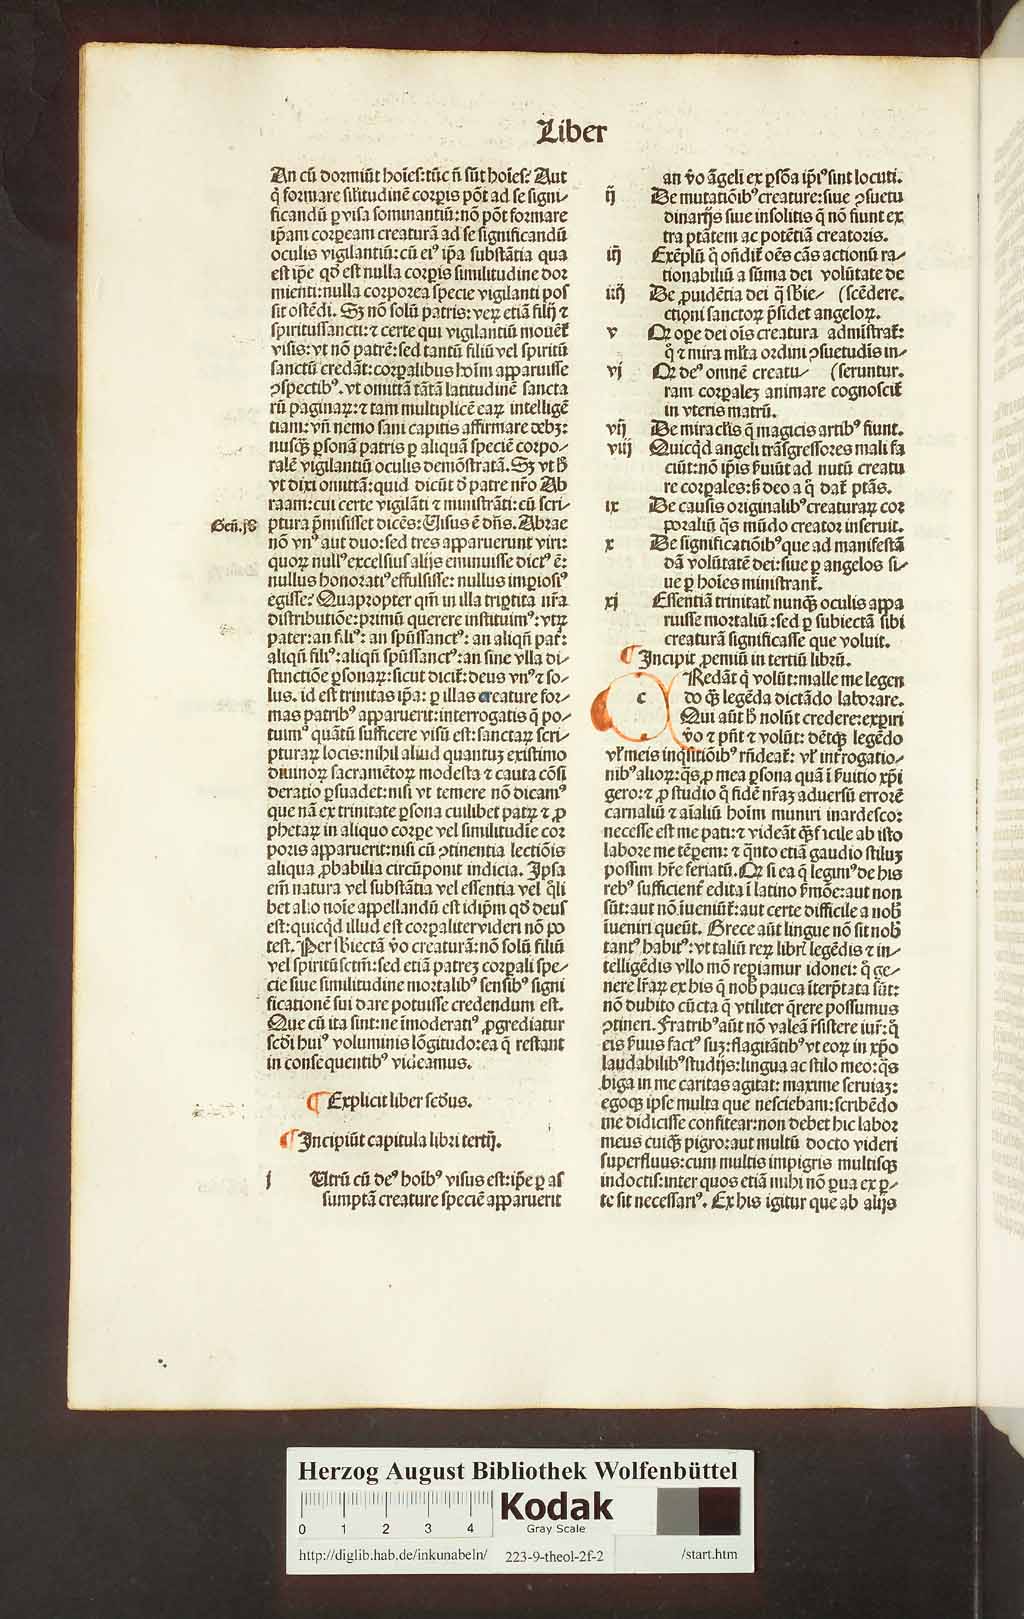 Liber
An cū dormiūt hoīes: tūc ñ sūt hoīes? Aut
q̊ formare sil'itudinē corꝑis pōt ad se signi-
ficandū ꝑ visa somniantiū: nō pōt formare
ip̄am corꝑeam creaturā ad se significandū
oculis vigilantiū: cū ei⁹ ip̄a substātia qua
est ip̄e qd̓ est nulla corꝑis similitudine dor
mienti: nulla corporea specie vigilanti pos
sit ostēdi. Sꝫ nō solū patris: veꝝ etiā filij ⁊
spiritussancti: ⁊ certe qui vigilantiū mouēt̄
visis: vt nō patrē: sed tantū filiū vel spiritū
sanctū credāt: corꝑalibus hoīm apparuisse
ↄspectib⁹. vt omittā tātā latitudinē sancta
rū paginaꝝ: ⁊ tam multiplicē eaꝝ intelligē
tiam: vñ nemo sani capitis affirmare debꝫ:
nusq̄ꝫ ꝑsonā patris ꝑ aliquā speciē corpo-
ralē vigilantiū oculis demōstratā. Sꝫ vt h̓
vt dixi omittā: quid dicūt d̓ patre nr̄o Ab
raam: cui certe vigilāti ⁊ ministrāti: cū scri-
Geñ. j8
ptura p̄misisset dicēs: Uisus ē dñs. Abrae
nō vn⁹ aut duo: sed tres apparuerunt viri:
quoꝝ null⁹ excelsius alijs eminuisse dict⁹ ē:
nullus honorati⁹ effulsisse: nullus imꝑiosi⁹
egisse? Quapropter qm̄ in illa triꝑtita nr̄a
distributiōe: primū querere instituim⁹: vtꝝ
pater: an fili⁹: an spūssanct⁹: an aliqñ pat̄:
aliqñ fili⁹: aliqñ spūssanct⁹: an sine vlla di-
stinctiōe ꝑsonaꝝ: sicut dicit̄: deus vn⁹ ⁊ so-
lus. id est trinitas ip̄a: ꝑ illas creature for-
mas patrib⁹ apparuerit: interrogatis q̄ po-
tuim⁹ quātū sufficere visū est: sanctaꝝ scri-
pturaꝝ locis: nihil aliud quantuꝫ existimo
diuinoꝝ sacramētoꝝ modesta ⁊ cauta cōsi
deratio ꝑsuadet: nisi vt temere nō dicam⁹
que nā ex trinitate ꝑsona cuilibet patꝝ ⁊ ꝓ
phetaꝝ in aliquo corꝑe vel similitudīe cor
poris apparuerit: nisi cū ↄtinentia lectiōis
aliqua ꝓbabilia circūponit indicia. Ipsa
em̄ natura vel substātia vel essentia vel q̄li
bet alio noīe appellandū est idip̄m qd̓ deus
est: quicq̇d illud est corꝑaliter videri nō po
test. Per sb̓iectā v̓o creaturā: nō solū filiū
vel spiritū sctm̄: sed etiā patreꝫ corꝑali spe-
cie siue similitudine mortalib⁹ sensib⁹ signi
ficationē sui dare potuisse credendum est.
Que cū ita sint: ne īmoderati⁹ ꝓgrediatur
scd̓i hui⁹ voluminis lōgitudo: ea q̄ restant
in consequentib⁹ videamus.
¶ Explicit liber scd̓us.
¶ Incipiūt capitula libri tertij.
j Utrū cū de⁹ hoīb⁹ visus est: ip̄e ꝑ as
sumptā creature speciē apparuerit
an v̓o āgeli ex ꝑsōa ip̄i⁹ sint locuti.
ij De mutatiōib⁹ creature: siue ↄsuetu
dinarijs siue insolitis q̄ nō fiunt ex
tra ptātem ac potētiā creatoris.
iij Exēplū q̊ oñdit̄ oēs cās actionū ra-
tionabiliū a sūma dei volūtate de
iiij De ꝓuidētia dei q̄ sb̓ie- (scēdere.
ctioni sanctoꝝ p̄sidet angeloꝝ.
v Qꝫ oꝑe dei oīs creatura administrat̄:
q̊ ⁊ mira ml̓ta ordini ↄsuetudis in-
vj Qꝫ de⁹ omnē creatu- (seruntur.
ram corꝑaleꝫ animare cognoscit̄
in vteris matrū.
vij De miracl̓is q̄ magicis artib⁹ fiunt.
viij Quicq̇d angeli trāsgressores mali fa
ciūt: nō ip̄is s̓uiūt ad nutū creatu
re corꝑales: s̓ deo a q̊ dat̄ ptās.
ix De causis originalib⁹ creaturaꝝ cor
poraliū q̄s mūdo creator inseruit.
x De significatiōib⁹ que ad manifestā
dā volūtatē dei: siue ꝑ angelos si-
ue ꝑ hoīes ministrant̄.
xj Essentiā trinitat̓ nunq̄ꝫ oculis appa
ruisse mortaliū: sed ꝑ subiectā sibi
creaturā significasse que voluit.
¶ Incipit ꝓemiū in tertiū librū.
c Redāt q̇ volūt: malle me legen
do q̄ꝫ legēda dictādo laborare.
Qui aūt h̓ nolūt credere: exꝑiri
v̓o ⁊ pn̄t ⁊ volūt: dēt q̄ legēdo
vl̓ meis inq̇sitiōib⁹ rn̄deat̄: vl̓ int̓rogatio-
nib⁹ alioꝝ: q̄s ꝓ mea ꝑsona quā ī s̓uitio xp̄i
gero: ⁊ ꝓ studio q̊ fidē nr̄aꝫ aduersū errorē
carnaliū ⁊ aīaliū hoīm muniri inardesco:
necesse est me pati: ⁊ videāt q̄ꝫ facile ab isto
labore me tēꝑem: ⁊ q̄nto etiā gaudio stiluꝫ
possim hr̄e feriatū. Qꝫ si ea q̄ legim⁹ de his
reb⁹ sufficient̓ edita ī latino s̓mōe: aut non
sūt: aut nō īueniūt̄: aut certe difficile a nob̓
īueniri queūt. Grece aūt lingue nō sit nob̓
tant⁹ habit⁹: vt taliū reꝝ libr̓ legēdis ⁊ in-
telligēdis vllo mō reꝑiamur idonei: q̊ ge-
nere lr̄aꝝ ex his q̄ nob̓ pauca īterp̄tata sūt:
nō dubito cūcta q̄ vtiliter q̄rere possumus
ↄtineri. Fratrib⁹ aūt nō valeā r̓sistere iur̓: q̊
eis s̓uus fact⁹ suꝫ: flagitātib⁹ vt eoꝝ in xp̄o
laudabilib⁹ studijs: lingua ac stilo meo: q̄s
biga in me caritas agitat: maxime seruiaꝫ:
egoqꝫ ipse multa que nesciebam: scribēdo
me didicisse confitear: non debet hic labor
meus cuiq̄ꝫ pigro: aut multū docto videri
superfluus: cum multis impigris multisqꝫ
indoctis: inter quos etiā mihi nō ꝑua ex ꝑ-
te sit necessari⁹. Ex his igitur que ab alijs
Herzog August Bibliothek Wolfenbüttel
0 1 2 3 4
Kodak
Gray Scale
http://diglib.hab.de/inkunabeln/ 223-9-theol-2f-2 /start.htm